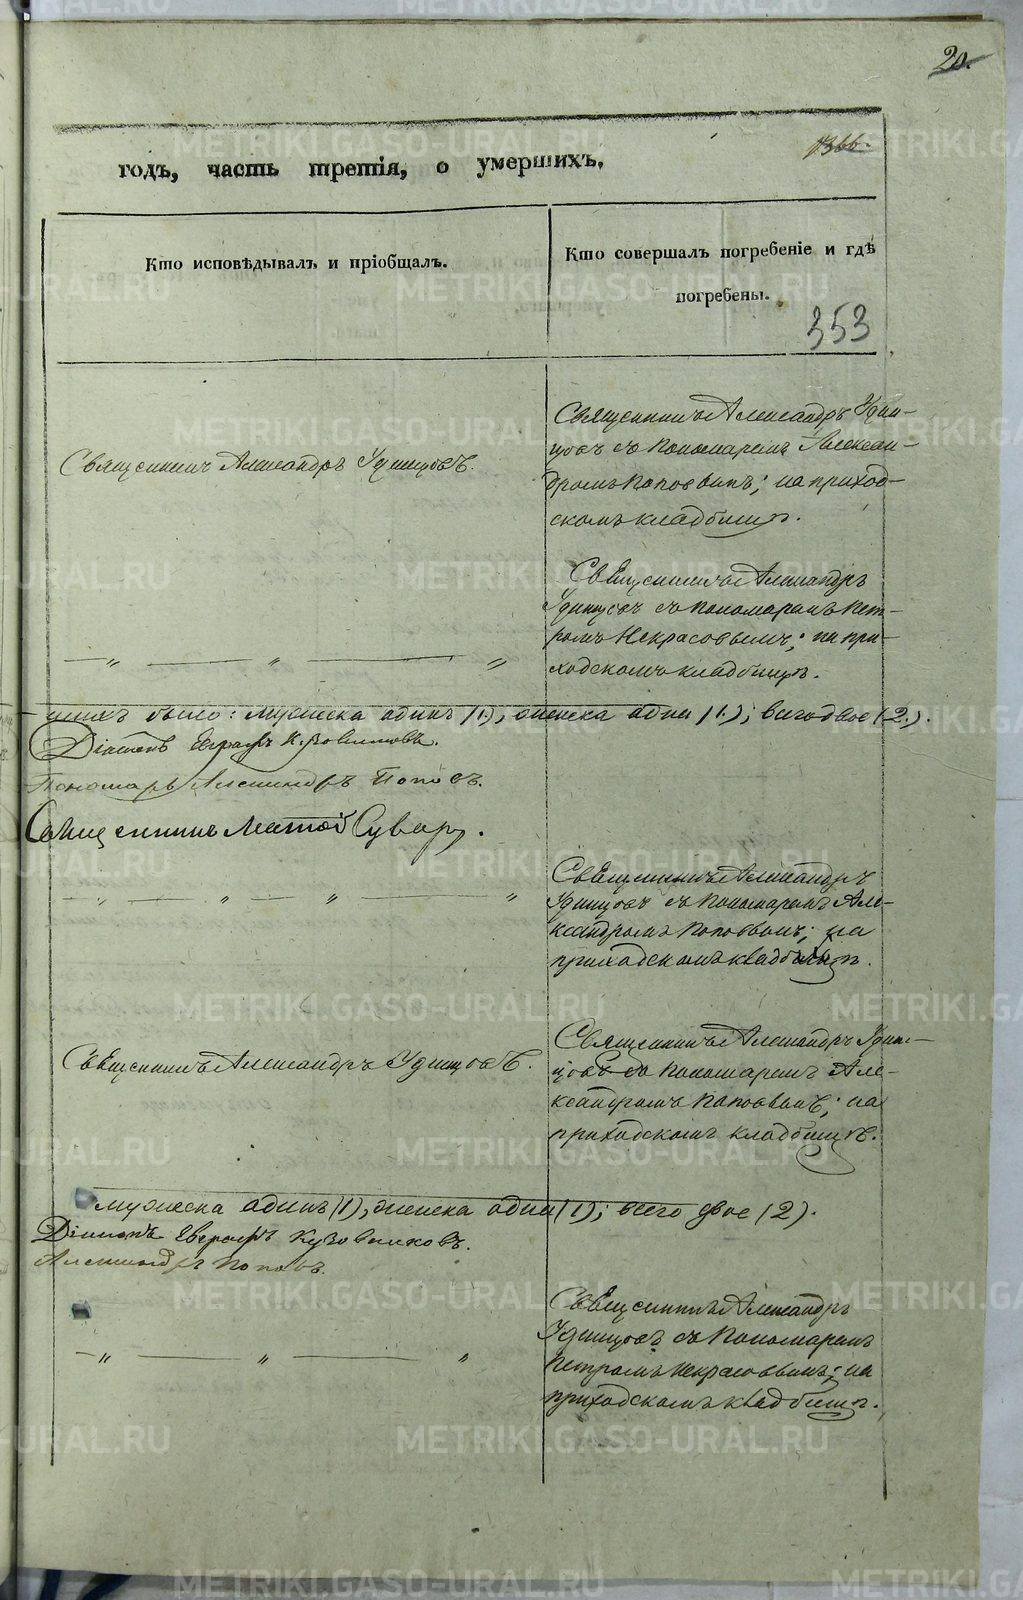 20.
1366.
годъ, часть третія, о умершихъ.
Кто исповѣдывалъ и пріобщалъ.
Кто совершалъ погребеніе и гдѣ
погребены.
353
Священникъ Александръ Удинцовъ.
Священникъ Александръ Удин-
цовъ съ Пономаремъ Алексан-
дромъ Поповымъ; на приход-
скомъ кладбищѣ.
Священникъ Александръ
Удинцовъ съ Пономаремъ Пет-
ромъ Некрасовымъ; на при-
ходскомъ кладбищѣ.
— „ — „ — „
было: мужеска одинъ (1), женска одна (1); всего двое (2).
Діаконъ Евграфъ Кузовниковъ.
Пономарь Александръ Поповъ.
Священникъ
— „ — „ — „ — „
Священникъ Александръ
Удинцовъ съ Пономаремъ Але-
ксандромъ Поповымъ; на
приходскомъ кладбищѣ.
Священникъ Александръ Удинцовъ.
Священникъ Александръ Удин-
цовъ съ Пономаремъ Але-
ксандромъ Поповымъ; на
приходскомъ кладбищѣ.
мужеска одинъ (1), женска одна (1); всего двое (2).
Діаконъ Евграфъ Кузовниковъ.
Александръ Поповъ.
— „ — „ — „
Священникъ Александръ
Удинцовъ съ Пономаремъ
Петромъ Некрасовымъ; на
приходскомъ кладбищѣ.
METRIKI.GASO-URAL.RU